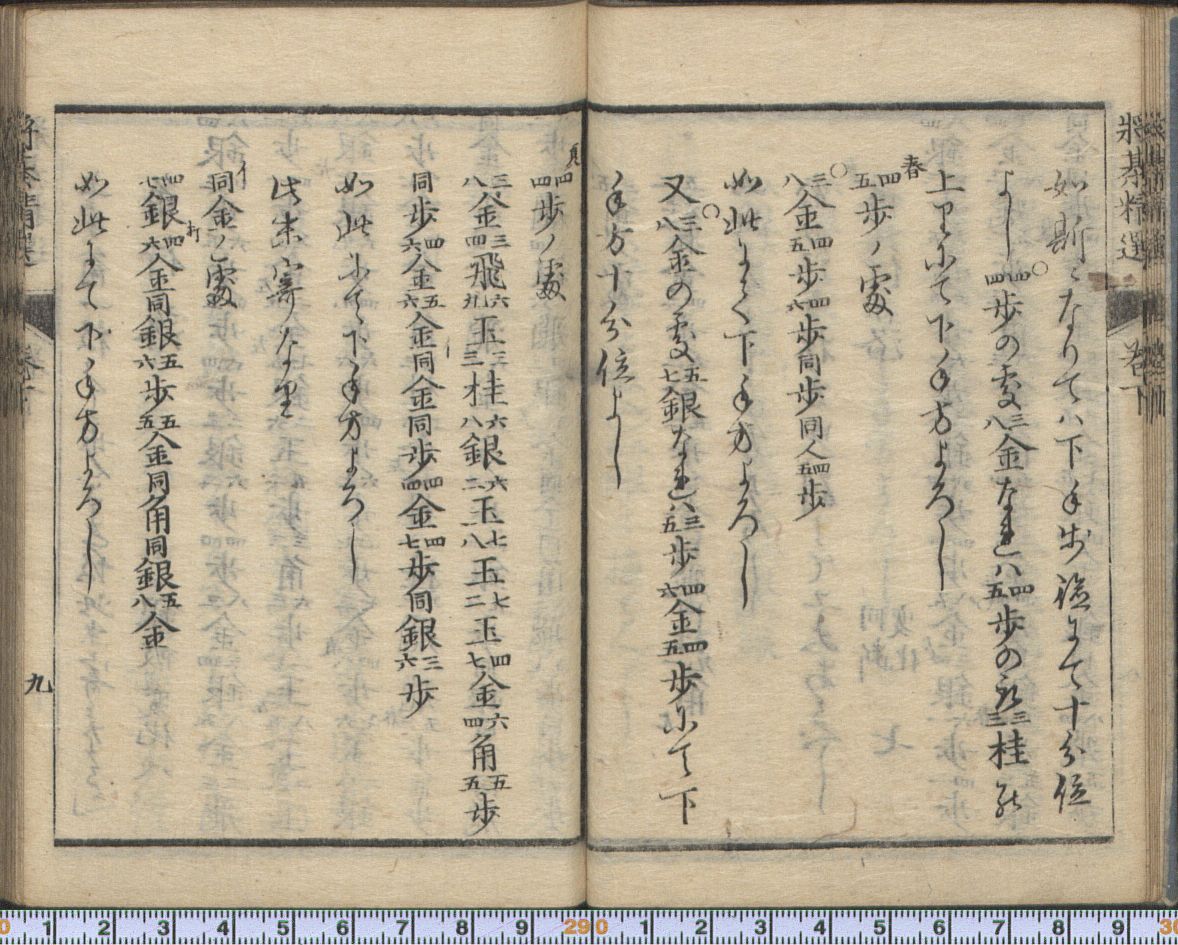 将棊精選 巻下
如斯になりては下手歩詰にて十分位
よし○四四歩の處三八金なれハ四五歩の
上りにて下ノ手方よろし
春
四五歩ノ處
○三八金四五歩四六歩同歩同人四五歩
如此にて下手方よろし
又○三八金の處五七銀なれハ三五歩四六金四五歩にて下
手方十分位よし
夏
四四歩ノ處
三八金三四飛六九玉三三桂六八銀六二玉七八玉七二玉四七金六四角五五歩
同歩四六金五六金同金同歩四四金四七歩同銀三六歩
如此にて下ノ手方よろし
此末寄なり
イ
同金ノ處
四七銀打四六金同銀五六歩五五金同角同銀五八金
如此にて下ノ手方よろし
九